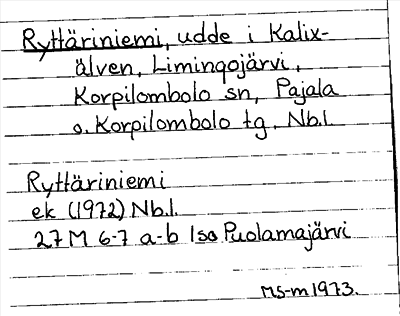 Ryttäriniemi, udde i Kalix-
älven, Limingojärvi,
Korpilombolo sn, Pajala
o. Korpilombolo tg, Nb.l.
Ryttäriniemi
ek (1972) Nb.l.
27 M 6-7 a-b Iso Puolamajärvi
MS-m 1973.